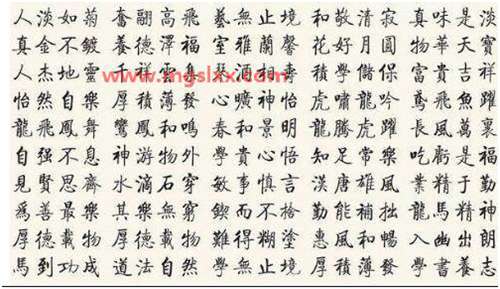 人淡如菊 奮翮高飛 藝無止境 和敬清寂 真味是淡
真金不鍍 養德澤福 室雅蘭馨 花好月圓 物華天寶
人杰地靈 千祥 相 積學儲保 富貴吉祥
www.mgslxx.com
怡然自樂 厚積薄發 心曠神怡 虎嘯龍吟 鳶飛魚躍
龍飛鳳舞 鸞鳳和鳴 春和景明 龍騰虎躍 長風萬裏
自强不息 神游物外 學貴心悟 知足常樂 吃虧是福
見賢思齊 水滴石穿 敏事慎言 漢唐雄風 業精于勤
爲善最樂 其樂無窮 鍥而不捨 勤能補拙 龍馬精神
厚德載物 厚德載物 難得糊塗 惠風和暢 入幽出朗
馬到功成 道法自然 學無止境 厚積薄發 學書養志